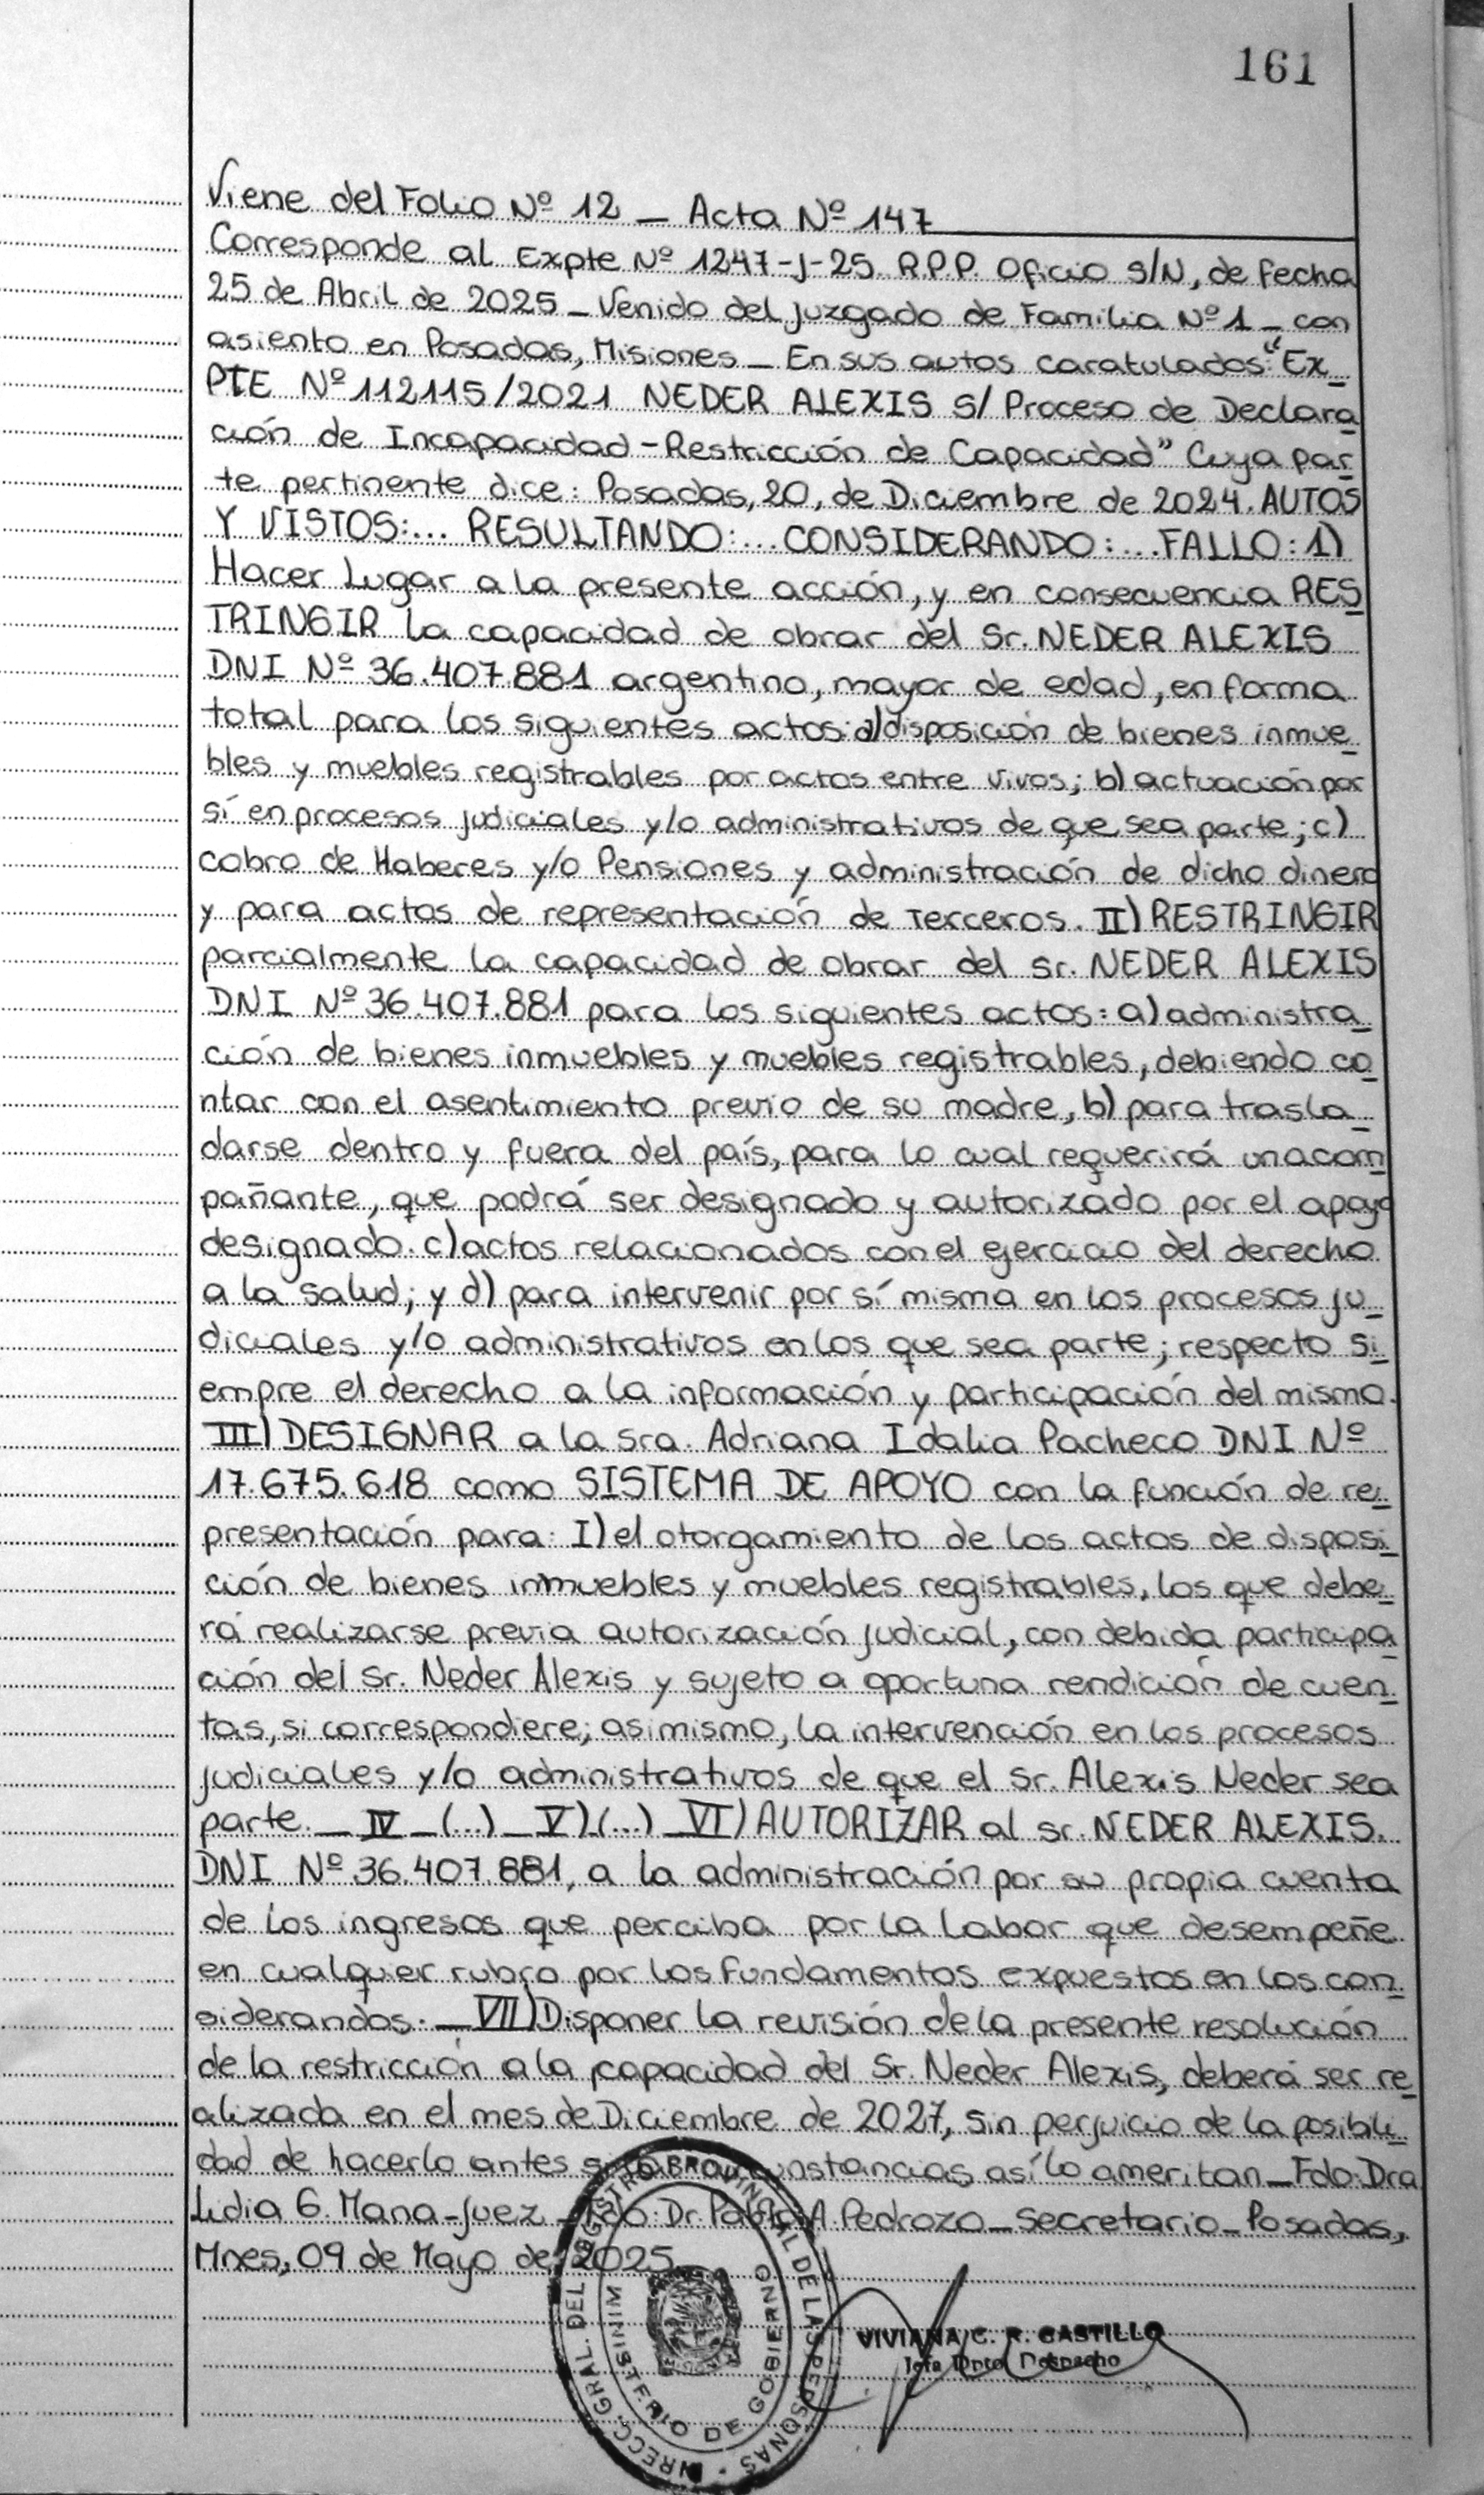 161
Viene del Folio Nº 12 _ Acta Nº 147
Corresponde al Expte Nº 1247-J-25 R.P.P. Oficio S/N, de fecha
25 de Abril de 2025 _ Venido del Juzgado de Familia Nº 1 _ con
asiento en Posadas, Misiones _ En sus autos caratulados "Ex_
PTE Nº 112115/2021 NEDER ALEXIS S/ Proceso de Declara
ción de Incapacidad - Restricción de Capacidad" Cuya par
te pertinente dice: Posadas, 20, de Diciembre de 2024. AUTOS
Y VISTOS:... RESULTANDO:... CONSIDERANDO:... FALLO: 1)
Hacer Lugar a la presente acción, y en consecuencia RES
TRINGIR la capacidad de obrar del Sr. NEDER ALEXIS
DNI Nº 36.407.881 argentino, mayor de edad, en forma
total para los siguientes actos: a) disposición de bienes inmue_
bles y muebles registrables por actos entre vivos; b) actuación por
sí en procesos judiciales y/o administrativos de que sea parte; c)
cobro de Haberes y/o Pensiones y administración de dicho dinero
y para actos de representación de Terceros. II) RESTRINGIR
parcialmente la capacidad de obrar del Sr. NEDER ALEXIS
DNI Nº 36.407.881 para los siguientes actos: a) administra_
ción de bienes inmuebles y muebles registrables, debiendo co
ntar con el asentimiento previo de su madre, b) para trasla_
darse dentro y fuera del país, para lo cual requerirá un acom
pañante, que podrá ser designado y autorizado por el apoyo
designado. c) actos relacionados con el ejercicio del derecho
a la salud; y d) para intervenir por sí misma en los procesos ju_
diciales y/o administrativos en los que sea parte; respecto si_
empre el derecho a la información y participación del mismo.
III) DESIGNAR a la Sra. Adriana Idalia Pacheco DNI Nº
17.675.618 como SISTEMA DE APOYO con la función de re_
presentación para: I) el otorgamiento de los actos de disposi_
ción de bienes inmuebles y muebles registrables, los que debe_
rá realizarse previa autorización judicial, con debida participa
ción del Sr. Neder Alexis y sujeto a oportuna rendición de cuen_
tas, si correspondiere; asimismo, la intervención en los procesos
judiciales y/o administrativos de que el Sr. Alexis Neder sea
parte. _ IV _ (...) _ V) (...) _ VI) AUTORIZAR al Sr. NEDER ALEXIS.
DNI Nº 36.407.881, a la administración por su propia cuenta
de los ingresos que perciba por la labor que desempeñe
en cualquier rubro por los fundamentos expuestos en los con_
siderandos. _ VII) Disponer la revisión de la presente resolución
de la restricción a la capacidad del Sr. Neder Alexis, deberá ser re_
alizada en el mes de Diciembre de 2027, sin perjuicio de la posibili_
dad de hacerlo antes si las circunstancias así lo ameritan _ Fdo: Dra
Lidia G. Mana - Juez _ Fdo: Dr. Pablo A Pedrozo _ Secretario _ Posadas,
Mnes, 09 de Mayo de 2025
DIRECC. GRAL. DEL REGISTRO PROVINCIAL DE LAS PERSONAS
MINISTERIO DE GOBIERNO
VIVIANA C. R. CASTILLO
Jefa Dpto Despacho